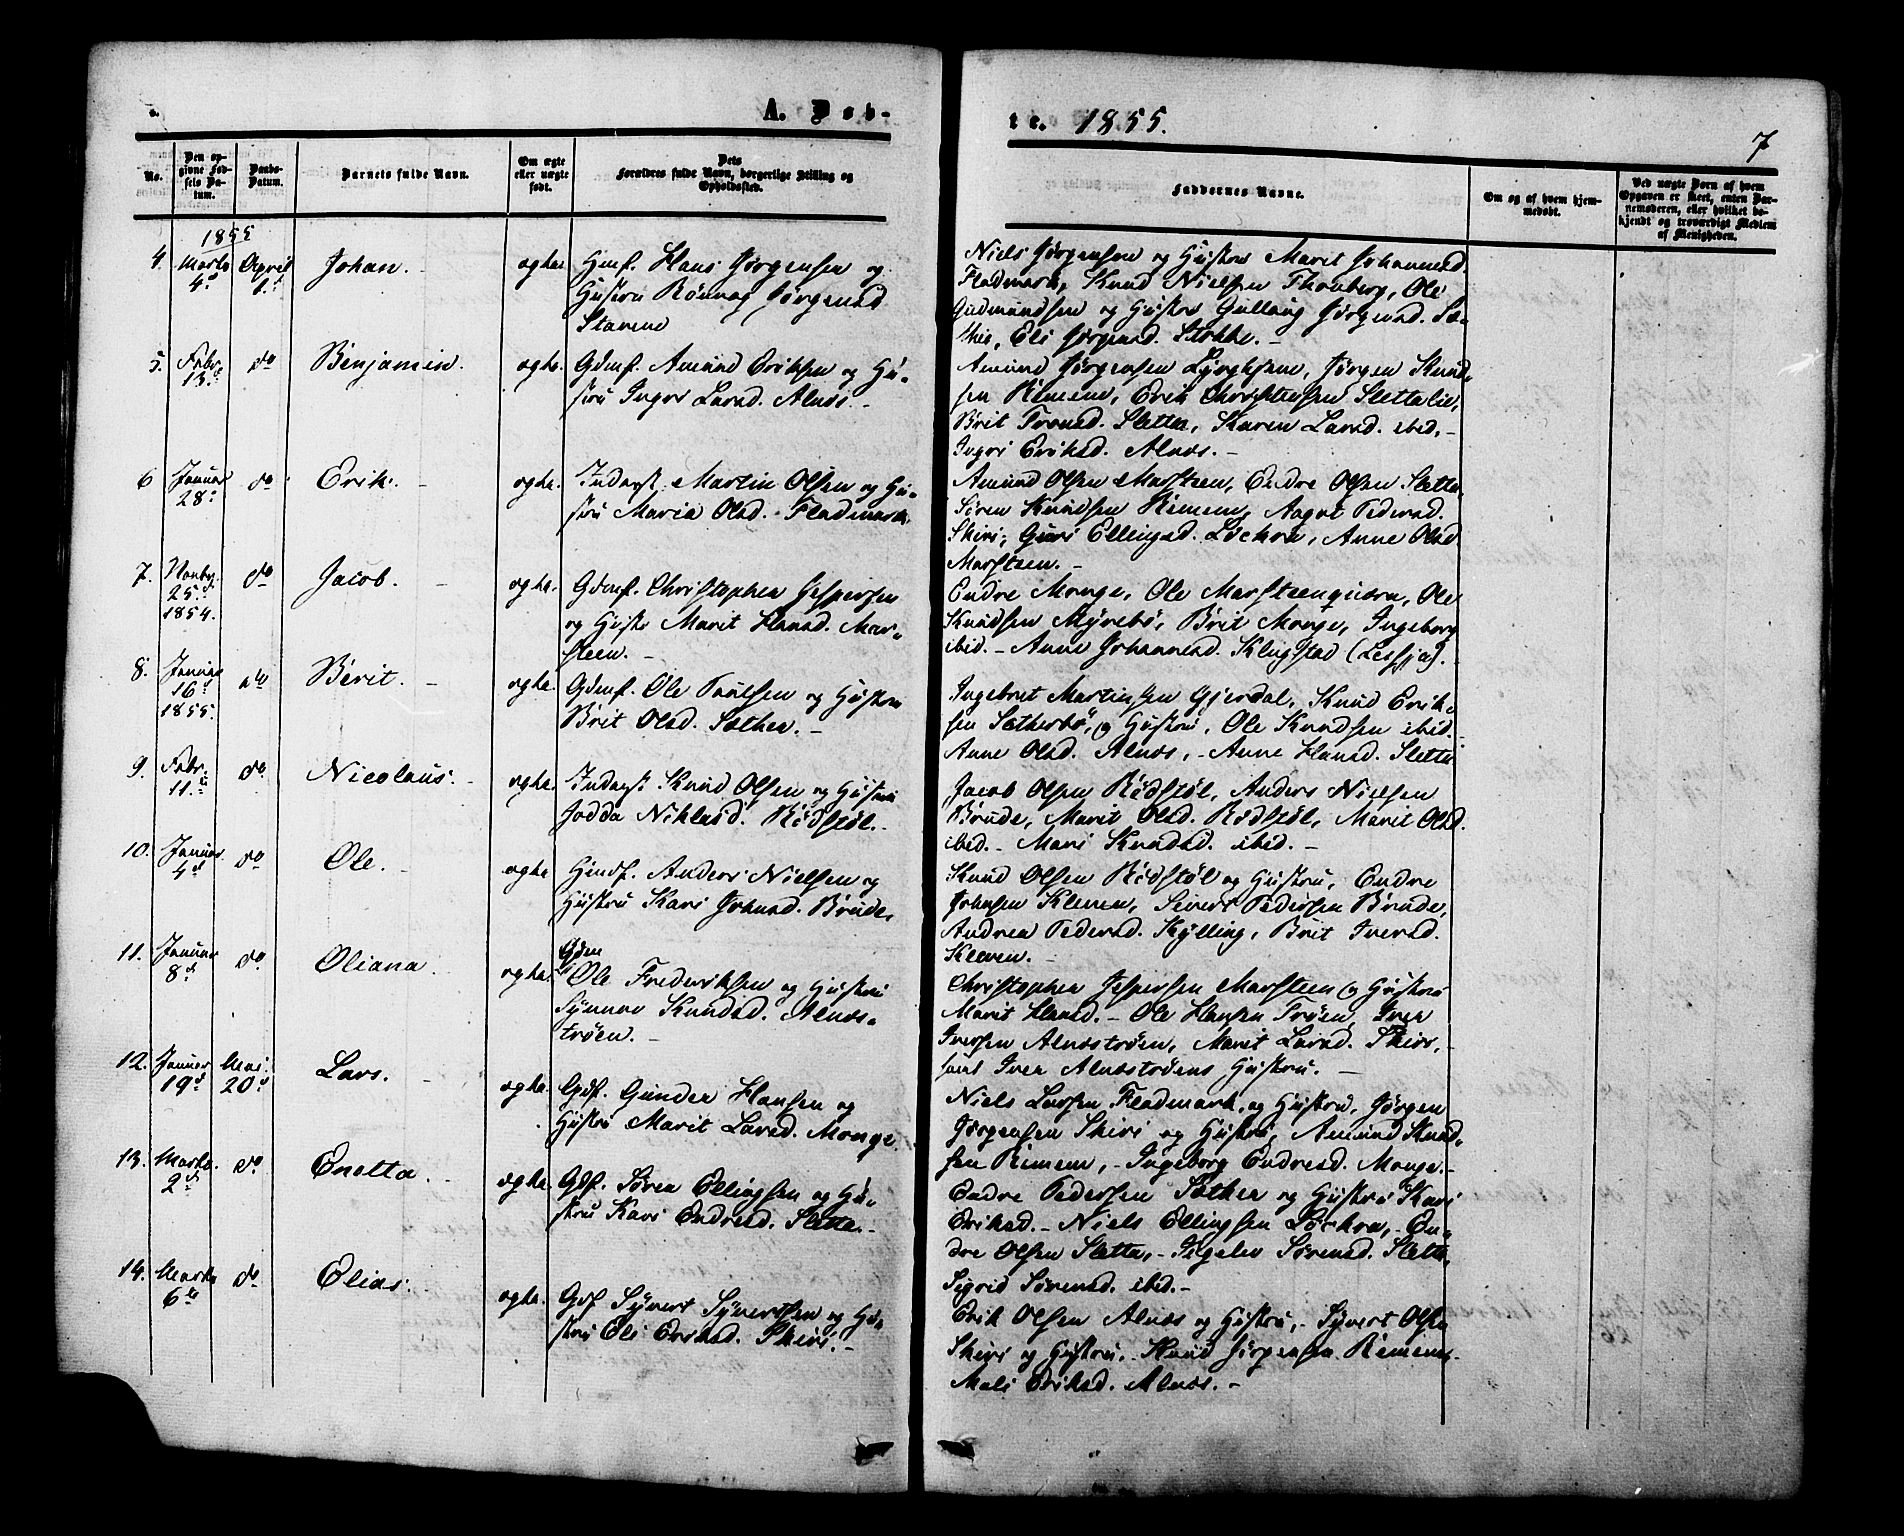 A. Døb-
te. 1855.
7
No.
Den op-
givne Fød-
sels Da-
tum.
Daabs-
Datum.
Barnets fulde Navn.
Om ægte
eller uægte
født.
Dets
Forældres fulde Navn, borgerlige Stilling og
Opholdssted.
Faddernes Navne.
Om og af hvem hjem-
medøbt.
Ved uægte Børn af hvem
Opgaven er skeet, enten Bar-
nemoderen, eller hvilket be-
kjendt og troværdigt Medlem
af Menigheden.
1855
4. Marts 4d April 1st Johan. - ægte. Hmf. Hans Jørgensen og
Hustru Rønnog Jørgensd
Stavene
Niels Jørgensen og Hustru Marit Johannesd.
Fladmark, Knud Nielsen Thonberg, Ole
Gudmundsen og Hustru Gullaug Jørgensd. Sæ-
ther, Eli Jørgensd. Stokke. -
5. Febr. 13d do Benjamin. ægte. Gdmf. Amund Eriksen og Hu-
stru Ingri Larsd. Alnæs. -
Amund Jørgensen Lyngheim, Jørgen Knud-
sen Remem, Erik Christensen Slettalie,
Brit Tronsd. Sletta, Karen Larsd. ibid. -
Ingri Eriksd. Alnæs. -
6 Januar 28d do Erik. - ægte. Indagst. Martin Olsen og Hu-
stru Maria Olsd. Fladmark.
Amund Olsen Marsteen, Endre Olsen Sletta,
Søren Knudsen Remem, Aagot Pedersd.
Skiri, Guri Ellingsd. Løchra, Anne Olsd
Marsteen. -
7. Novbr. 25d 1854. do Jacob. - ægte. Gdmf. Christopher Jespersen
og Hustr Marit Hansd. Mar-
steen. -
Endre Monge, Ole Marsteenqværn, Ole
Knudsen Myrebø, Brit Monge, Ingeborg
ibid. - Anne Johannesd. Klugstad (Lessja). -
8. Januar 16d 1855. do Berit. - ægte. Gdmf. Ole Paulsen og Hustru
Brit Olsd. Sæther. -
Ingebret Martinsen Gjerdal, Knud Erik-
sen Sætherbø, og Hustru, Ole Knudsen ibid. -
Anne Olsd. Alnæs, - Anne Hansd. Sletta
9. Febr. 11te do Nicolaus. - ægte. Indagst. Knud Olsen og Hustru
Jodda Niklasd. Rødstøl. -
Jacob Olsen Rødstøl, Anders Nielsen
Brude, Marit Olsd. Rødstøl, Marit Olsd.
ibid. - Mari Knudsd. ibid. -
10. Januar 4d do Ole. - ægte Hmdf. Anders Nielsen og
Hustru Kari Johnsd. Brude.
Knud Olsen Rødstøl og Hustru, Endre
Johnsen Kleven, Sivert Pedersen Brude,
Andrea Pedersd. Kylling, Brit Iversd.
Kleven. -
11. Januar 8d do Oliana. ægte. Gdm
Ole Frederiksen og Hustru
Synnøv Knudsd. Alnæs-
trøen. -
Christopher Jespersen Marsteen og Hustru
Marit Hansd. - Ole Hansen Trøen, Iver
Iversen Alnæstrøen, Marit Larsd. Skiri, -
samt Iver Alnæstrøens Hustru. -
12. Januar 19d Mai 20d Lars. - ægte. Gdf. Gunder Hansen og
Hustru Marit Larsd. Monge.
Niels Larsen Fladmark og Hustru, Jørgen
Jørgensen Skiri og Hustru, Amund Knud-
sen Remem, - Ingeborg Endresd. Monge. -
13. Marts 2d do Enotta. ægte. Gdf. Søren Ellingsen og Hu-
stru Kari Endresd. Sletta. -
Endre Pedersen Sæther og Hustru Kari
Eriksd. - Niels Ellingsen Løchra, - En-
dre Olsen Sletta, - Ingelev Sørensd. Sletta,
Sigrid Sørensd. ibid. -
14. Marts 6te do Elias. ægte. Gdf Syvert Syvertsen og Hu-
stru Eli Eriksd. Skiri. -
Erik Olsen Alnæs og Hustru, - Syvert Olsen
Skiri og Hustru, - Knud Jørgensen Remem. -
Mali Eriksd. Alnæs. -